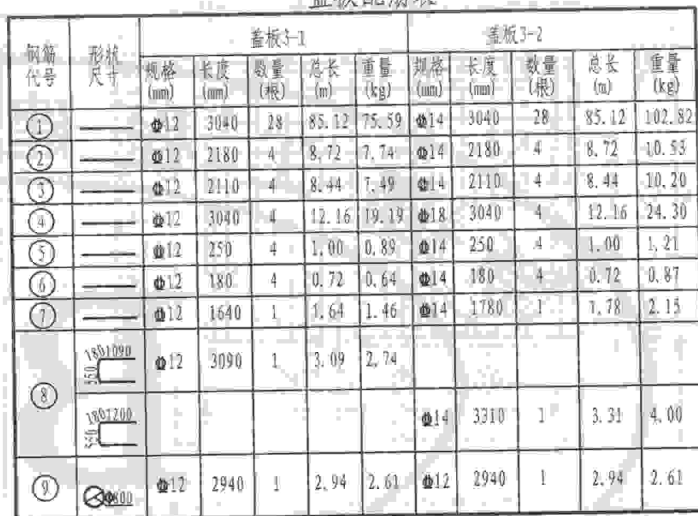 盖板配筋表
钢筋代号 形状尺寸 盖板3-1 盖板3-2
规格(mm) 长度(mm) 数量(根) 总长(m) 重量(kg) 规格(mm) 长度(mm) 数量(根) 总长(m) 重量(kg)
① Φ12 3040 28 85.12 75.59 Φ14 3040 28 85.12 102.82
② Φ12 2180 4 8.72 7.74 Φ14 2180 4 8.72 10.53
③ Φ12 2110 4 8.44 7.49 Φ14 2110 4 8.44 10.20
④ Φ12 3040 4 12.16 19.19 Φ18 3040 4 12.16 24.30
⑤ Φ12 250 4 1.00 0.89 Φ14 250 4 1.00 1.21
⑥ Φ12 180 4 0.72 0.64 Φ14 180 4 0.72 0.87
⑦ Φ12 1640 1 1.64 1.46 Φ14 1780 1 1.78 2.15
⑧ 180 1090 550 Φ12 3090 1 3.09 2.74
180 1200 550 Φ14 3310 1 3.31 4.00
⑨ Φ800 Φ12 2940 1 2.94 2.61 Φ12 2940 1 2.94 2.61